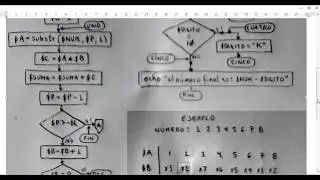 UNO
$A = substr($NUM, $P, L)
$C = $A * $B
$SUMA = $SUMA + $C
$P = $P - L
NO
$B = $B + L
NO
$DIGITO
SI
CUATRO
$DIGITO = "K"
CINCO
CINCO
echo "el numero final es: $NUM - $DIGITO"
FIN
EJEMPLO
NUMERO: 1 2 3 4 5 6 7 8
$A 1 2 3 4 5 6 7 8
$B x3 x2 x7 x6 x5 x4 x3 x2